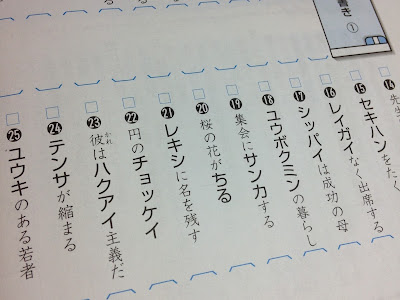 書き①
⑭先生
⑮セキハンをたく
⑯レイガイなく出席する
⑰シッパイは成功の母
⑱ユウボクミンの暮らし
⑲集会にサンカする
⑳桜の花がちる
㉑レキシに名を残す
㉒円のチョッケイ
㉓彼はハクアイ主義だ
かれ
㉔テンサが縮まる
㉕ユウキのある若者